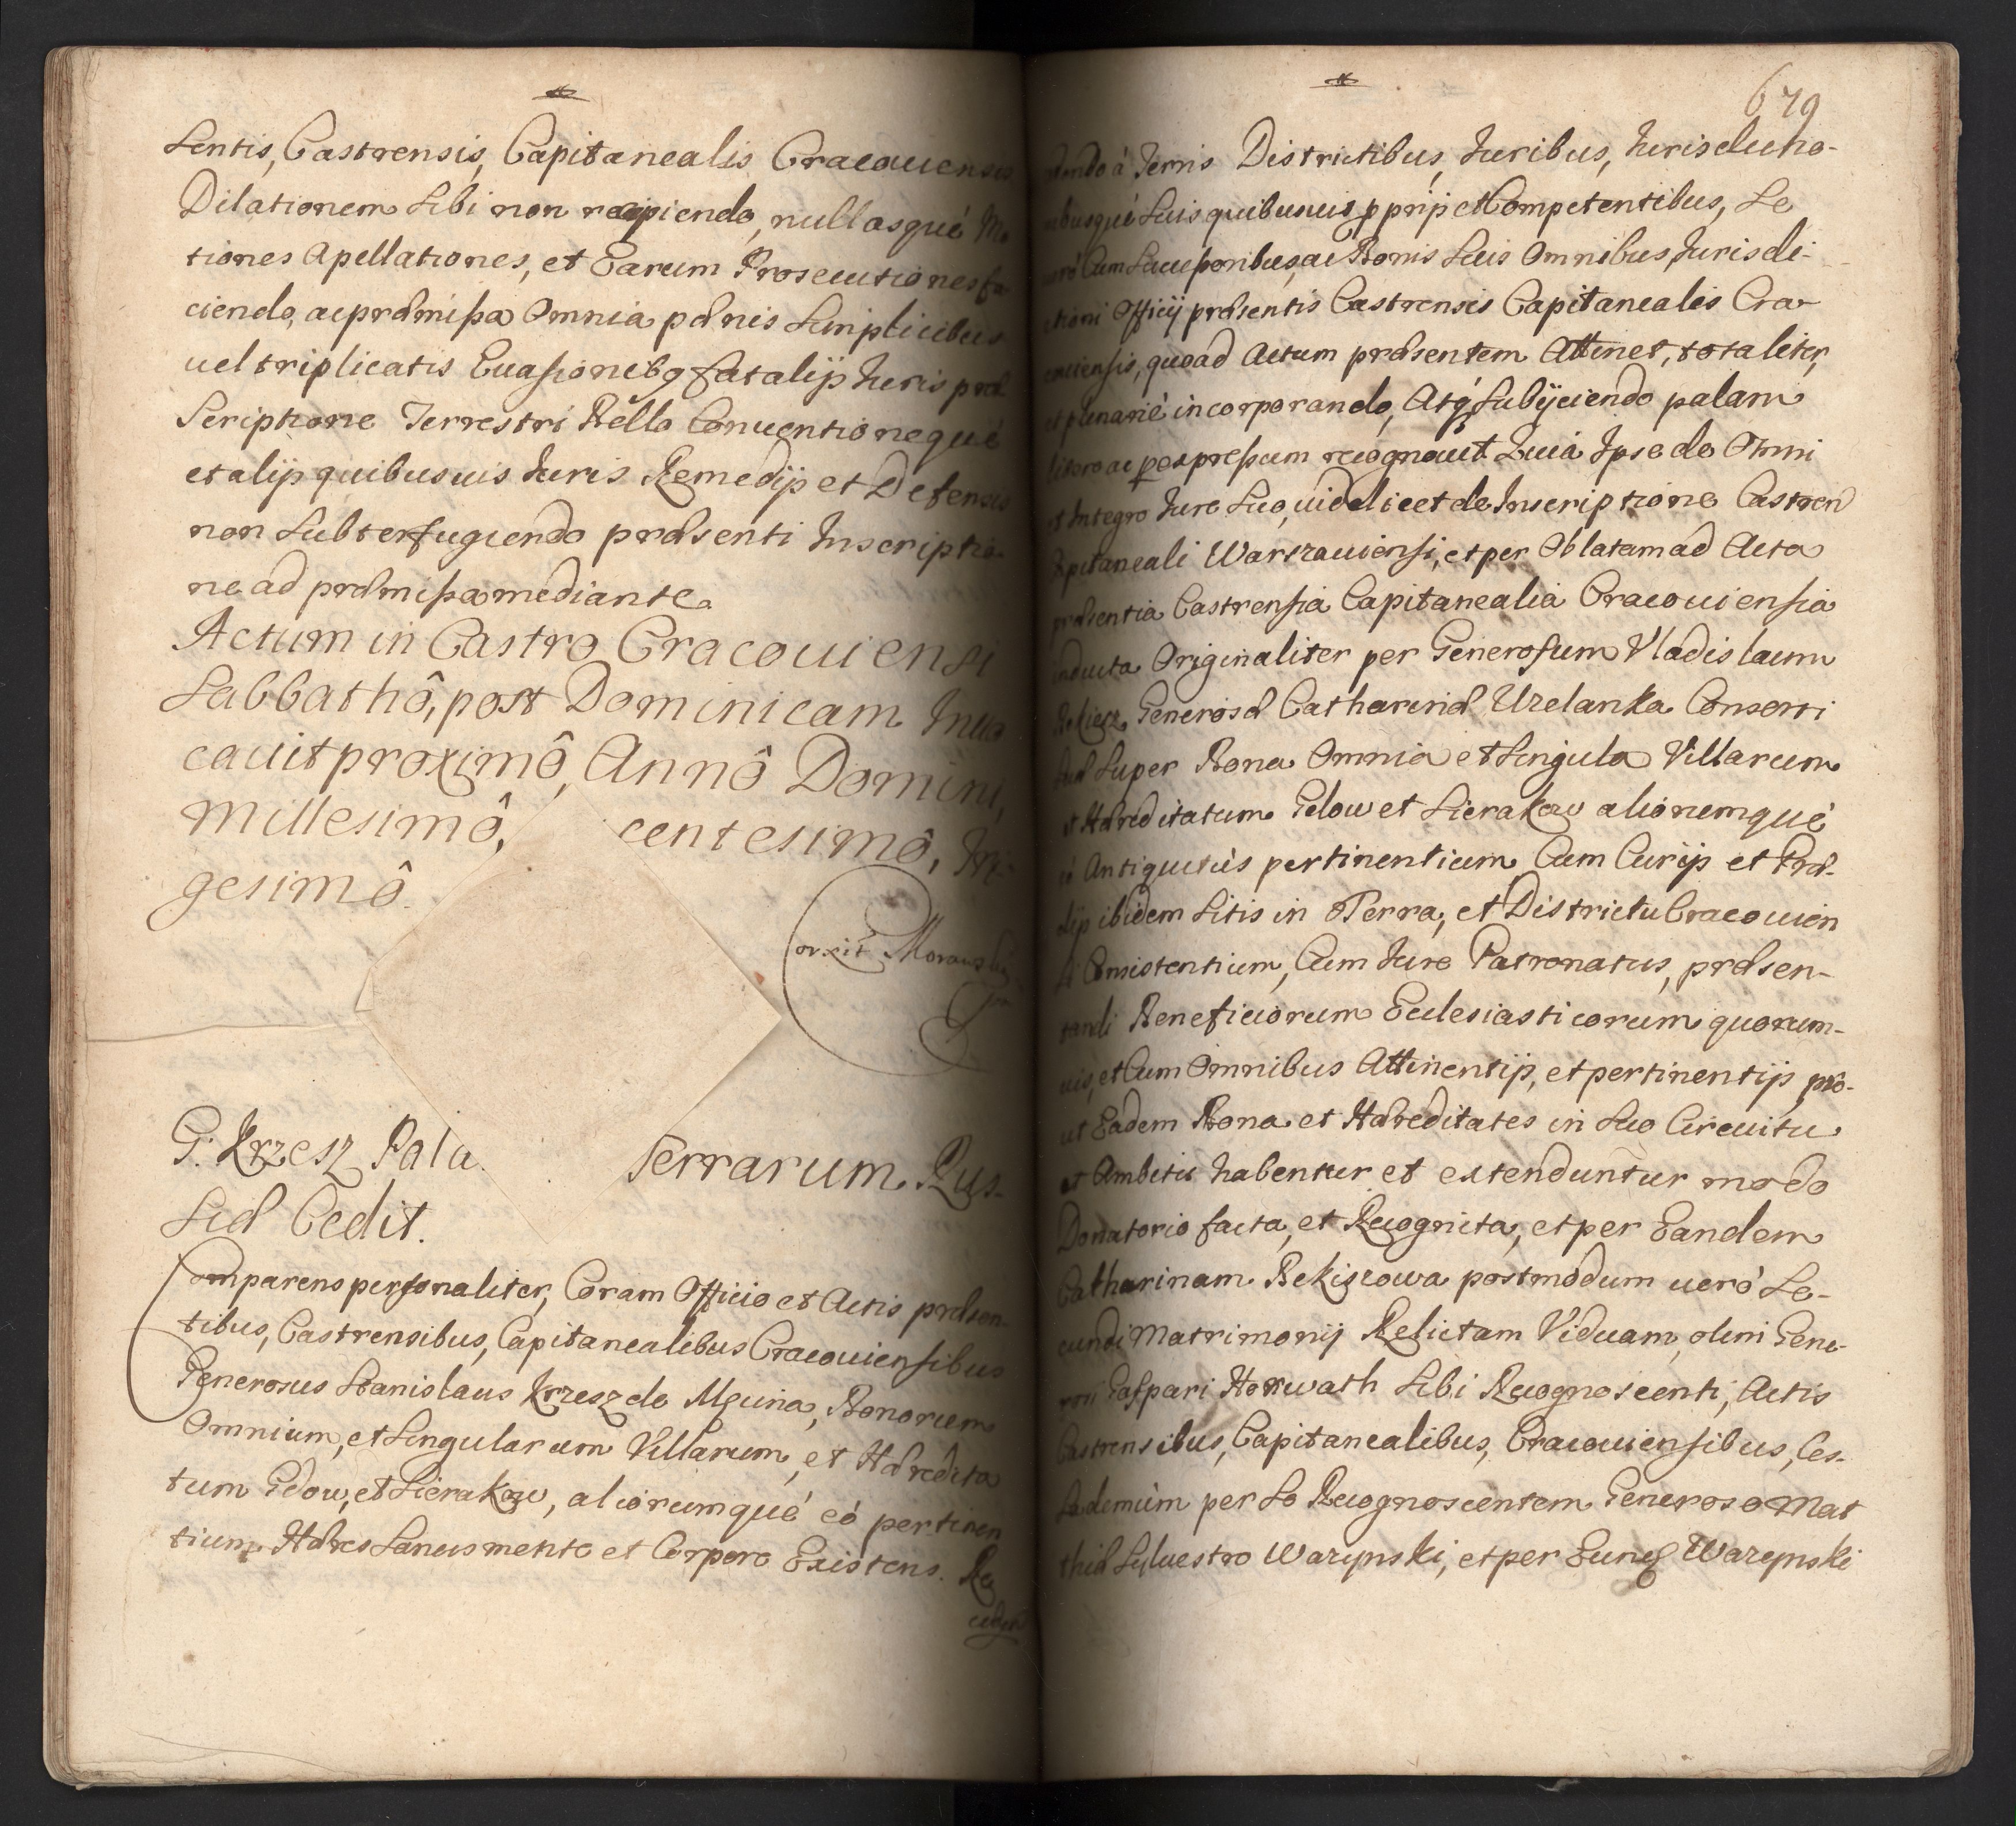 sentis, Castrensis, Capitanealis Cracouiensis
Dilationem Sibi non recipiendo, nullasquè Mo
tiones Apellationes, et Earum Prosecutiones fa
ciendo, ac præmißa Omnia pænis Simplicibus
uel triplicatis Euasionibq fatalijs Iuris præ
Scriptione Terrestri Bello Conuentionequè
et alijs quibusuis Iuris Remedijs et Defensis
non Subterfugiendo præsenti Inscriptio
ne ad præmißa mediante.
Actum in Castro Cracouiensi
Sabbathô, post Dominicam Inuo
cauit proximô, Annô Domini,
Millesimô, centesimô, Tri
gesimô.
Corxit Morawski
G: Krzesz Pala. Terrarum Rus-
siæ Cedit.
Comparens personaliter, Coram Officio et Actis præsen
tibus, Castrensibus, Capitanealibus Cracouiensibus
Generosus Stanislaus Krzesz de Męcina, Bonorum
Omnium, et Singularum Villarum, et Hæredita
tum Gdow, et Sierakow, aliorumquè eò pertinen
tium Hæres Sanus mente et Corpore Existens. Re
cedendo
679
dendo à Terris Districtibus, Iuribus, Iurisdictio-
nibusquè Suis quibusuis pprijs et Competentibus, Se
uerò Cum Successoribus, ac Bonis Suis Omnibus Iurisdi-
ctioni Officij præsentis Castrensis Capitanealis Cra-
couiensis, quoad Actum præsentem Attinet, totaliter,
et plenariè incorporando, Atq Subijciendo palam
libere ac p expressum recognouit Quia Ipse de Omni
et Integro Iure Suo, uidelicet de Inscriptione Castren
Capitaneali Warszauiensi, et per Oblatam ad Acta
præsentia Castrensia Capitanealia Cracouiensia
inducta Originaliter per Generosum Vladislaum
Rekiesz Generosæ Catharinæ Uzelanka Consorti
suæ Super Bona Omnia et Singula Villarum
et Hæreditatum Gdow et Sierakow aliorumquè
eò Antiquitùs pertinentium Cum Curijs et Præ-
dijs ibidem Sitis in Terra, et Districtu Cracouien
si Consistentium, Cum Iure Patronatus, præsen-
tandi Beneficiorum Ecclesiasticorum quorum-
uis, et Cum Omnibus Attinentijs, et pertinentijs pro-
ut Eadem Bona et Hæreditates in Suo Circuitu
et Ambitu habentur et extenduntur modo
Donatorio facta, et Recognita, et per Eandem
Catharinam Rekiszowa postmodum uerò Se-
cundi Matrimonij Relictam Viduam, olim Gene-
rosi Gaspari Horwath Sibi Recognoscenti, Actis
Castrensibus, Capitanealibus, Cracouiensibus, Ces-
sa demùm per Se Recognoscentem Generoso Mat
thiæ Syluestro Warzynski, et per Eund Warzynski